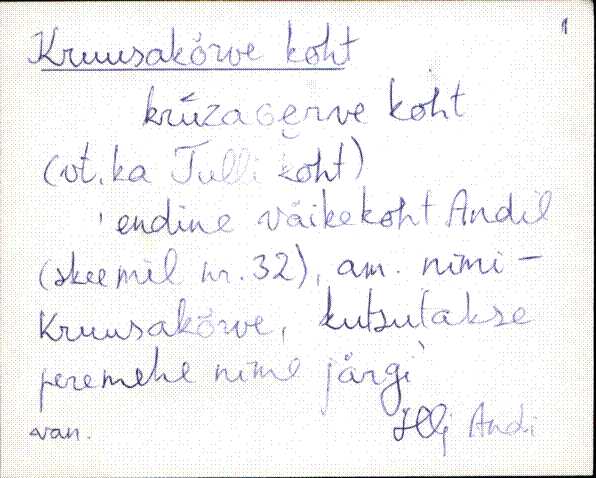 1
Kruusakõrve koht
krūzaɢe̮rve koht
(vt. ka Tulli koht)
endine väikekoht Andil
(skeemil nr. 32), am. nimi –
Kruusakõrve, kutsutakse
peremehe nime järgi
van. Hlj Andi